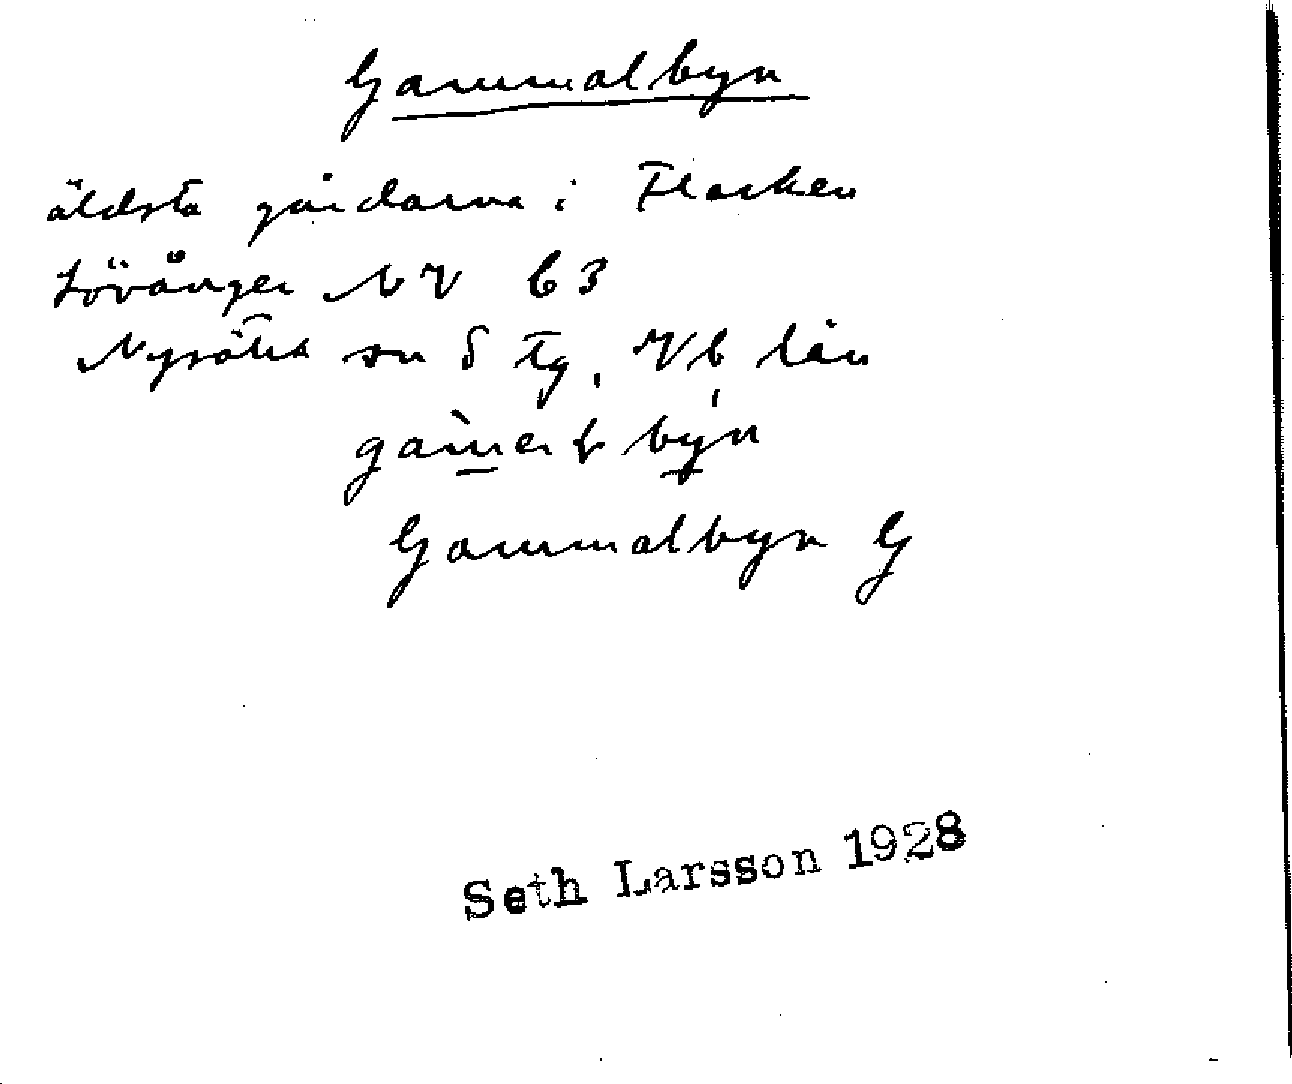 Gammalbyn
äldsta gårdarna i Flarken
Lövånger NV b 3
Nysätra sn S Tg, Vb län
byn
Gammalbyn G
Seth Larsson 1928